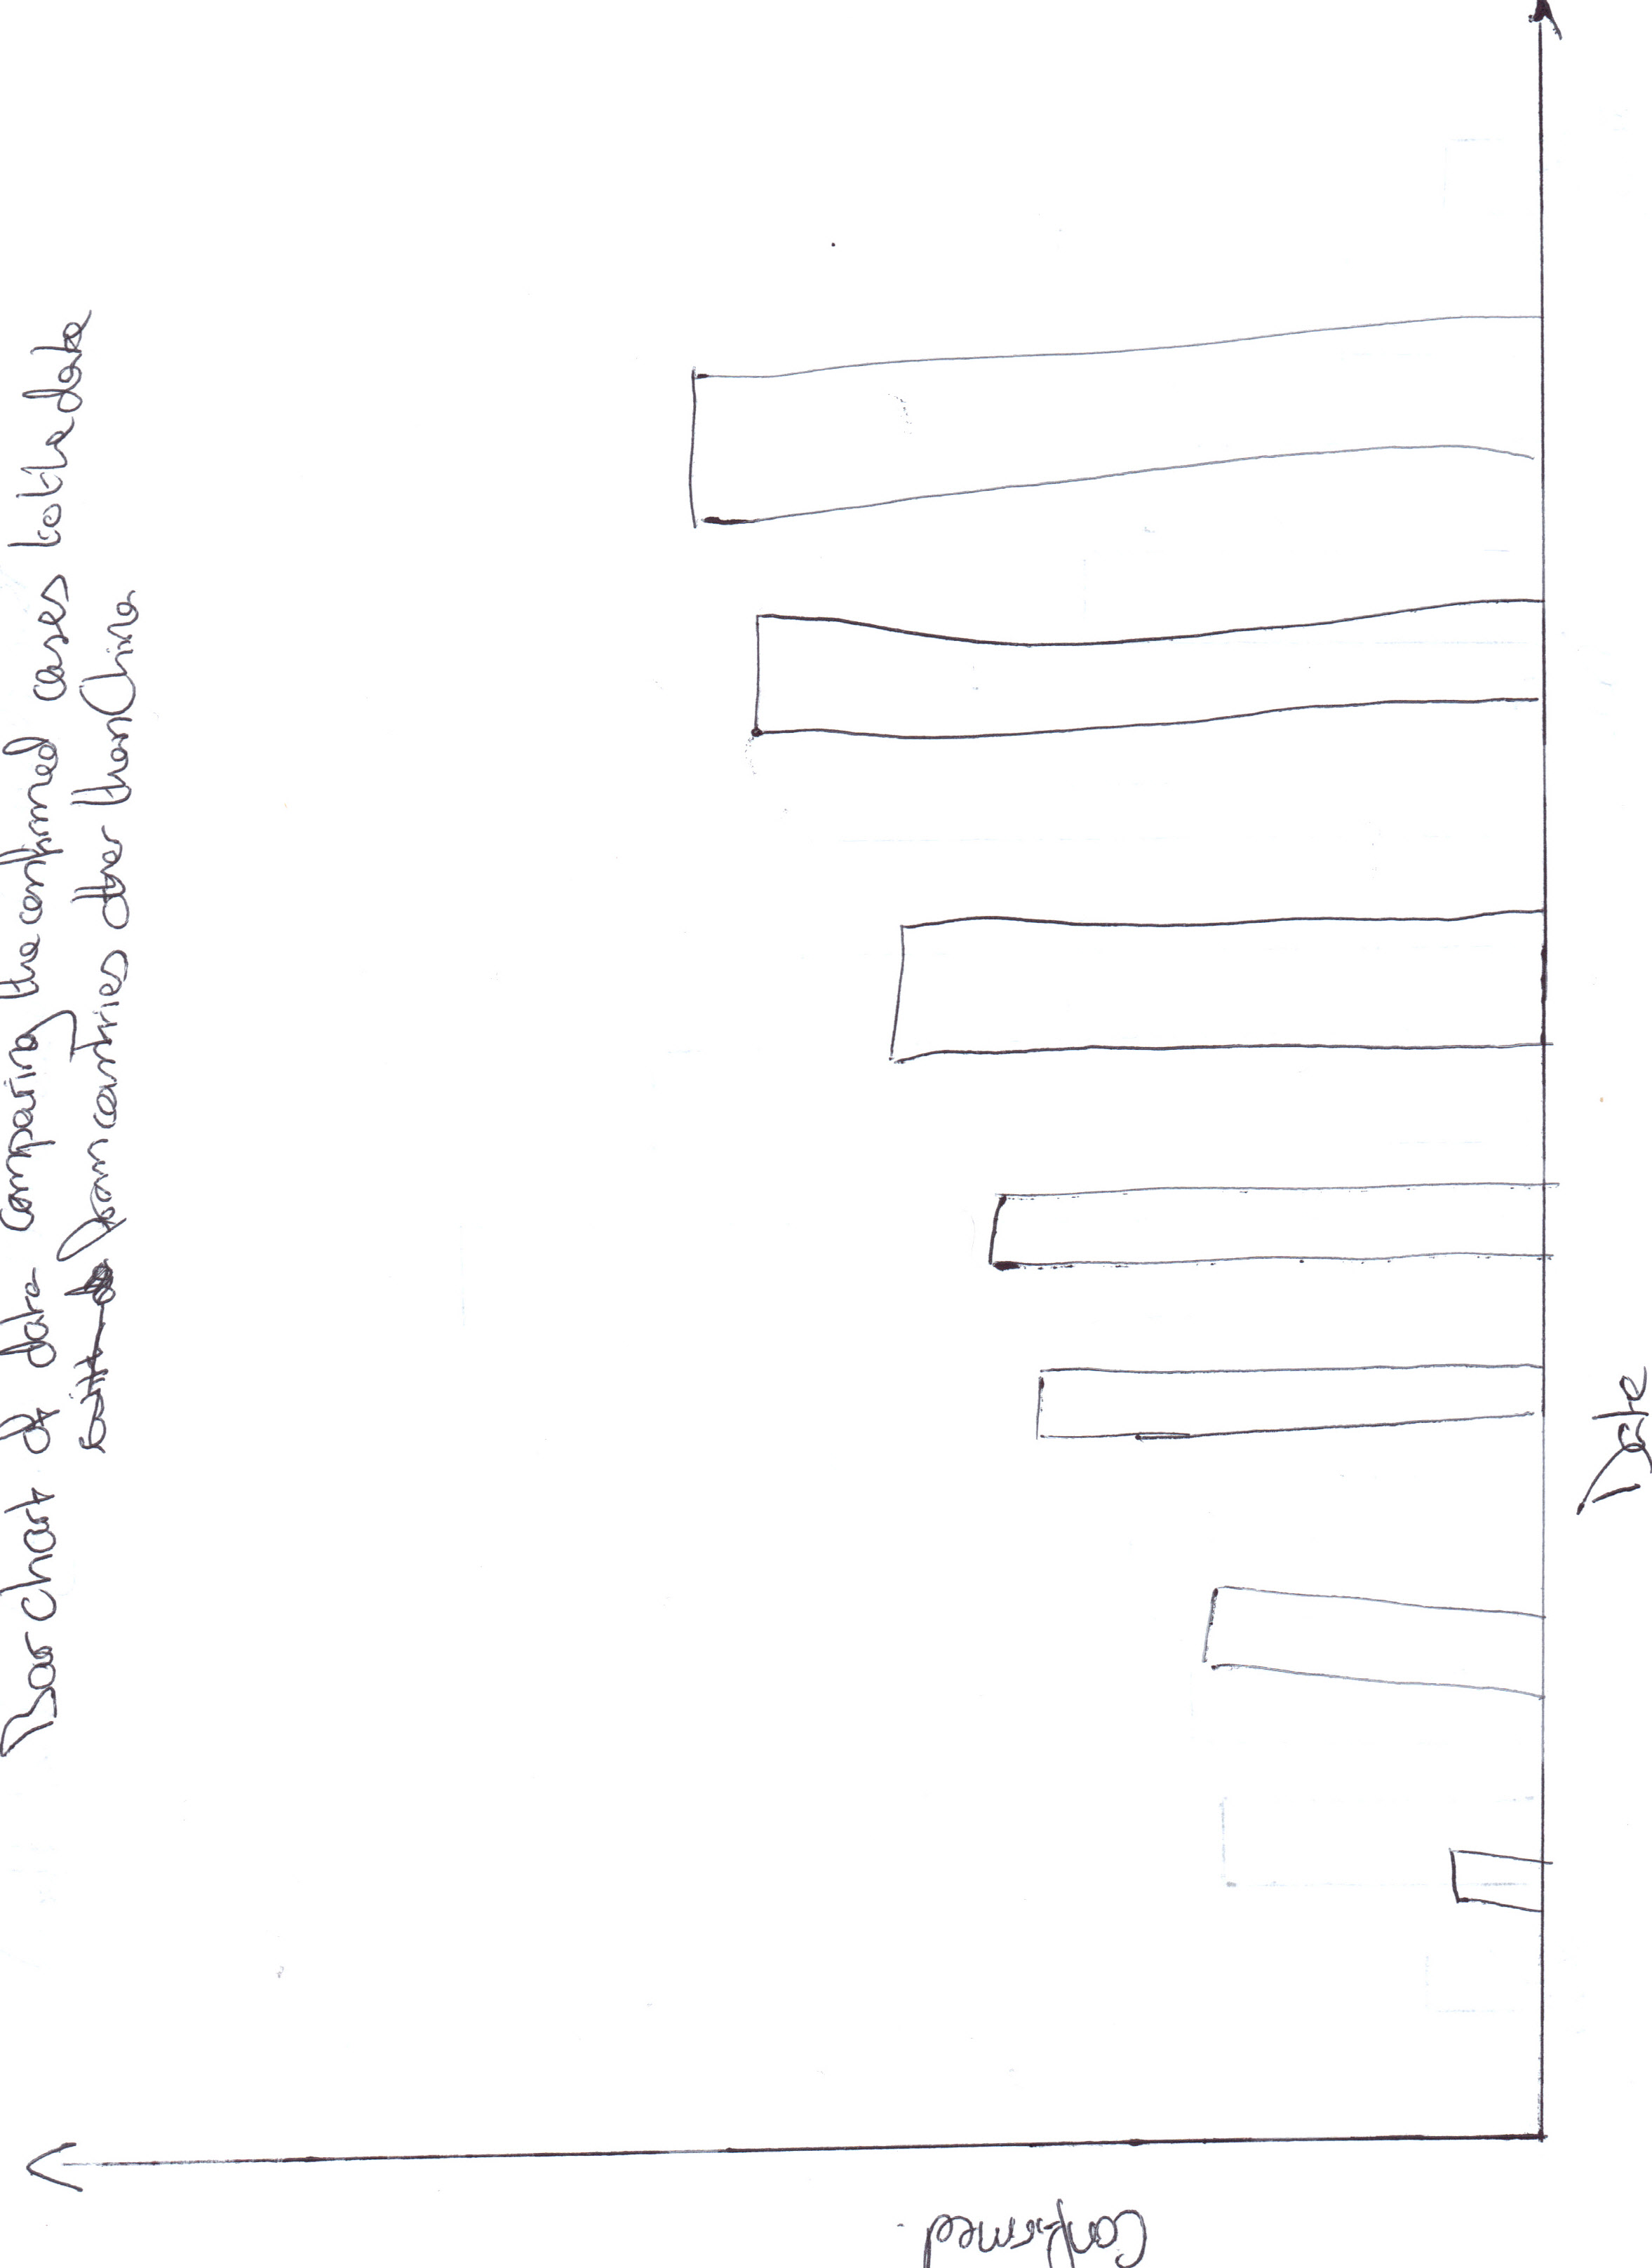 Bar chart of data comparing the confirmed cases to the date
from countries other than China
Confirmed.
Date